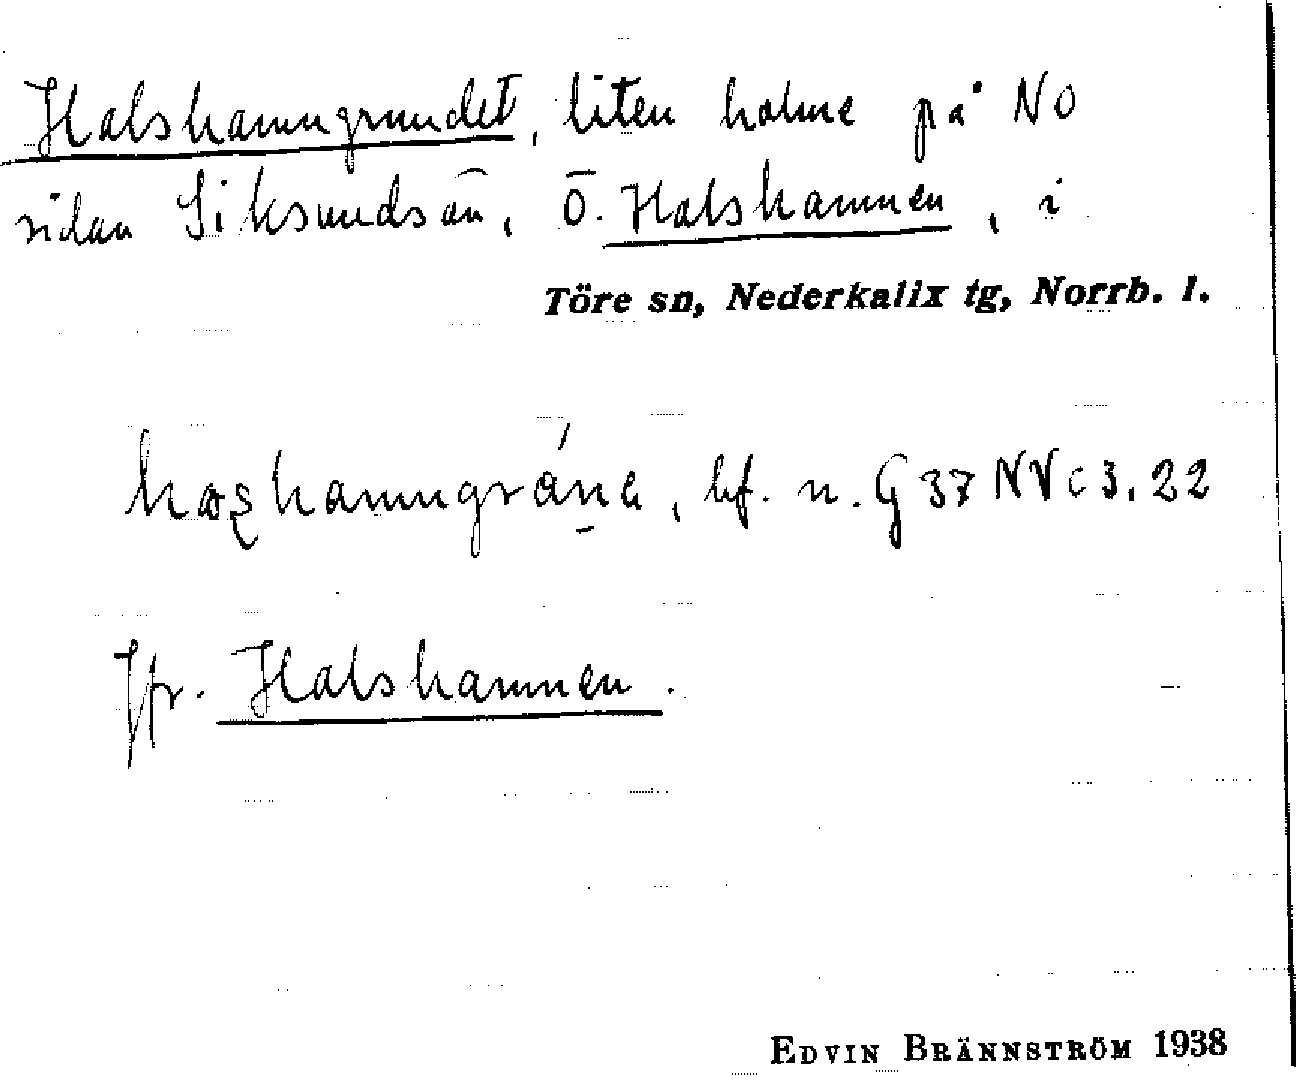 Halshamngrundet, liten holme på NO
sidan Siksundsön, Ö. Halshamnen, i
Töre sn, Nederkalix tg, Norrb. l.
bf. n. G 37 NV c 3. 22
Jfr. Halshamnen.
EDVIN BRÄNNSTRÖM 1938